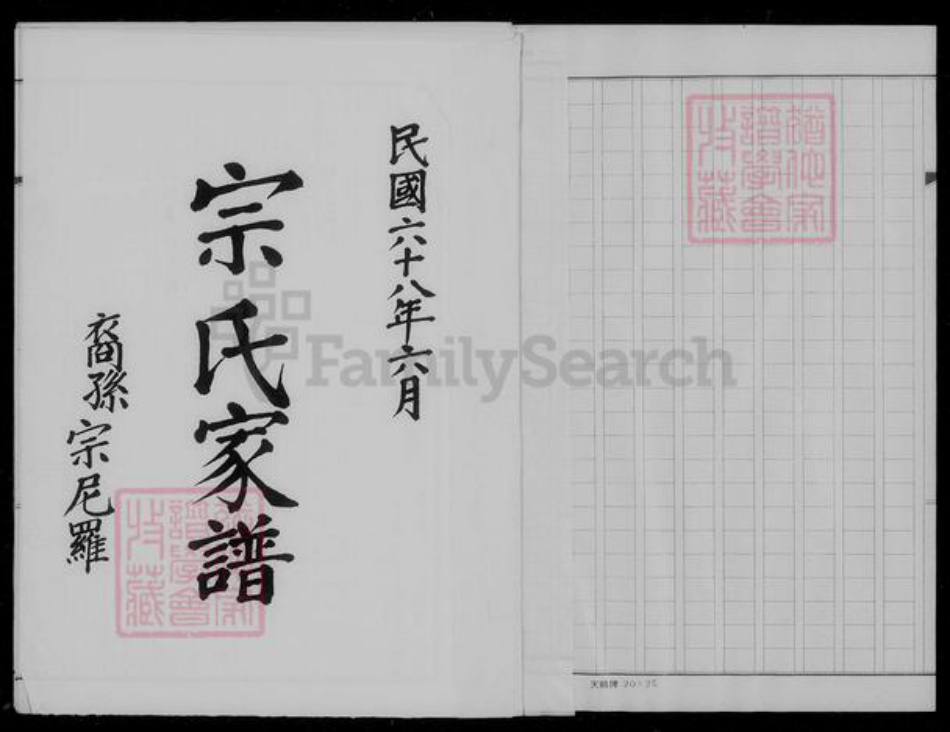 民國六十八年六月
宗氏家譜
裔孫宗尼羅
譜學會
收藏
FamilySearch
譜學會
收藏
天鵝牌 20×25